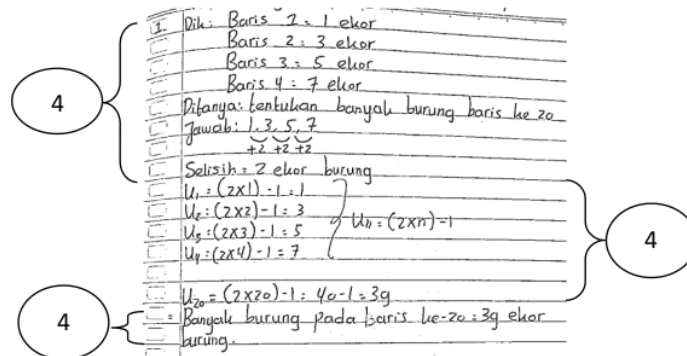 1. Dik: Baris 1 = 1 ekor
Baris 2 = 3 ekor
Baris 3 = 5 ekor
Baris 4 = 7 ekor
Ditanya: tentukan banyak burung baris ke 20
Jawab: 1, 3, 5, 7
+2 +2 +2
Selisih = 2 ekor burung
U₁ = (2x1) - 1 = 1
U₂ = (2x2) - 1 = 3
U₃ = (2x3) - 1 = 5
U₄ = (2x4) - 1 = 7
Uₙ = (2xn) - 1
U₂₀ = (2x20) - 1 = 40 - 1 = 39
= Banyak burung pada baris ke-20 = 39 ekor
burung.
4
4
4